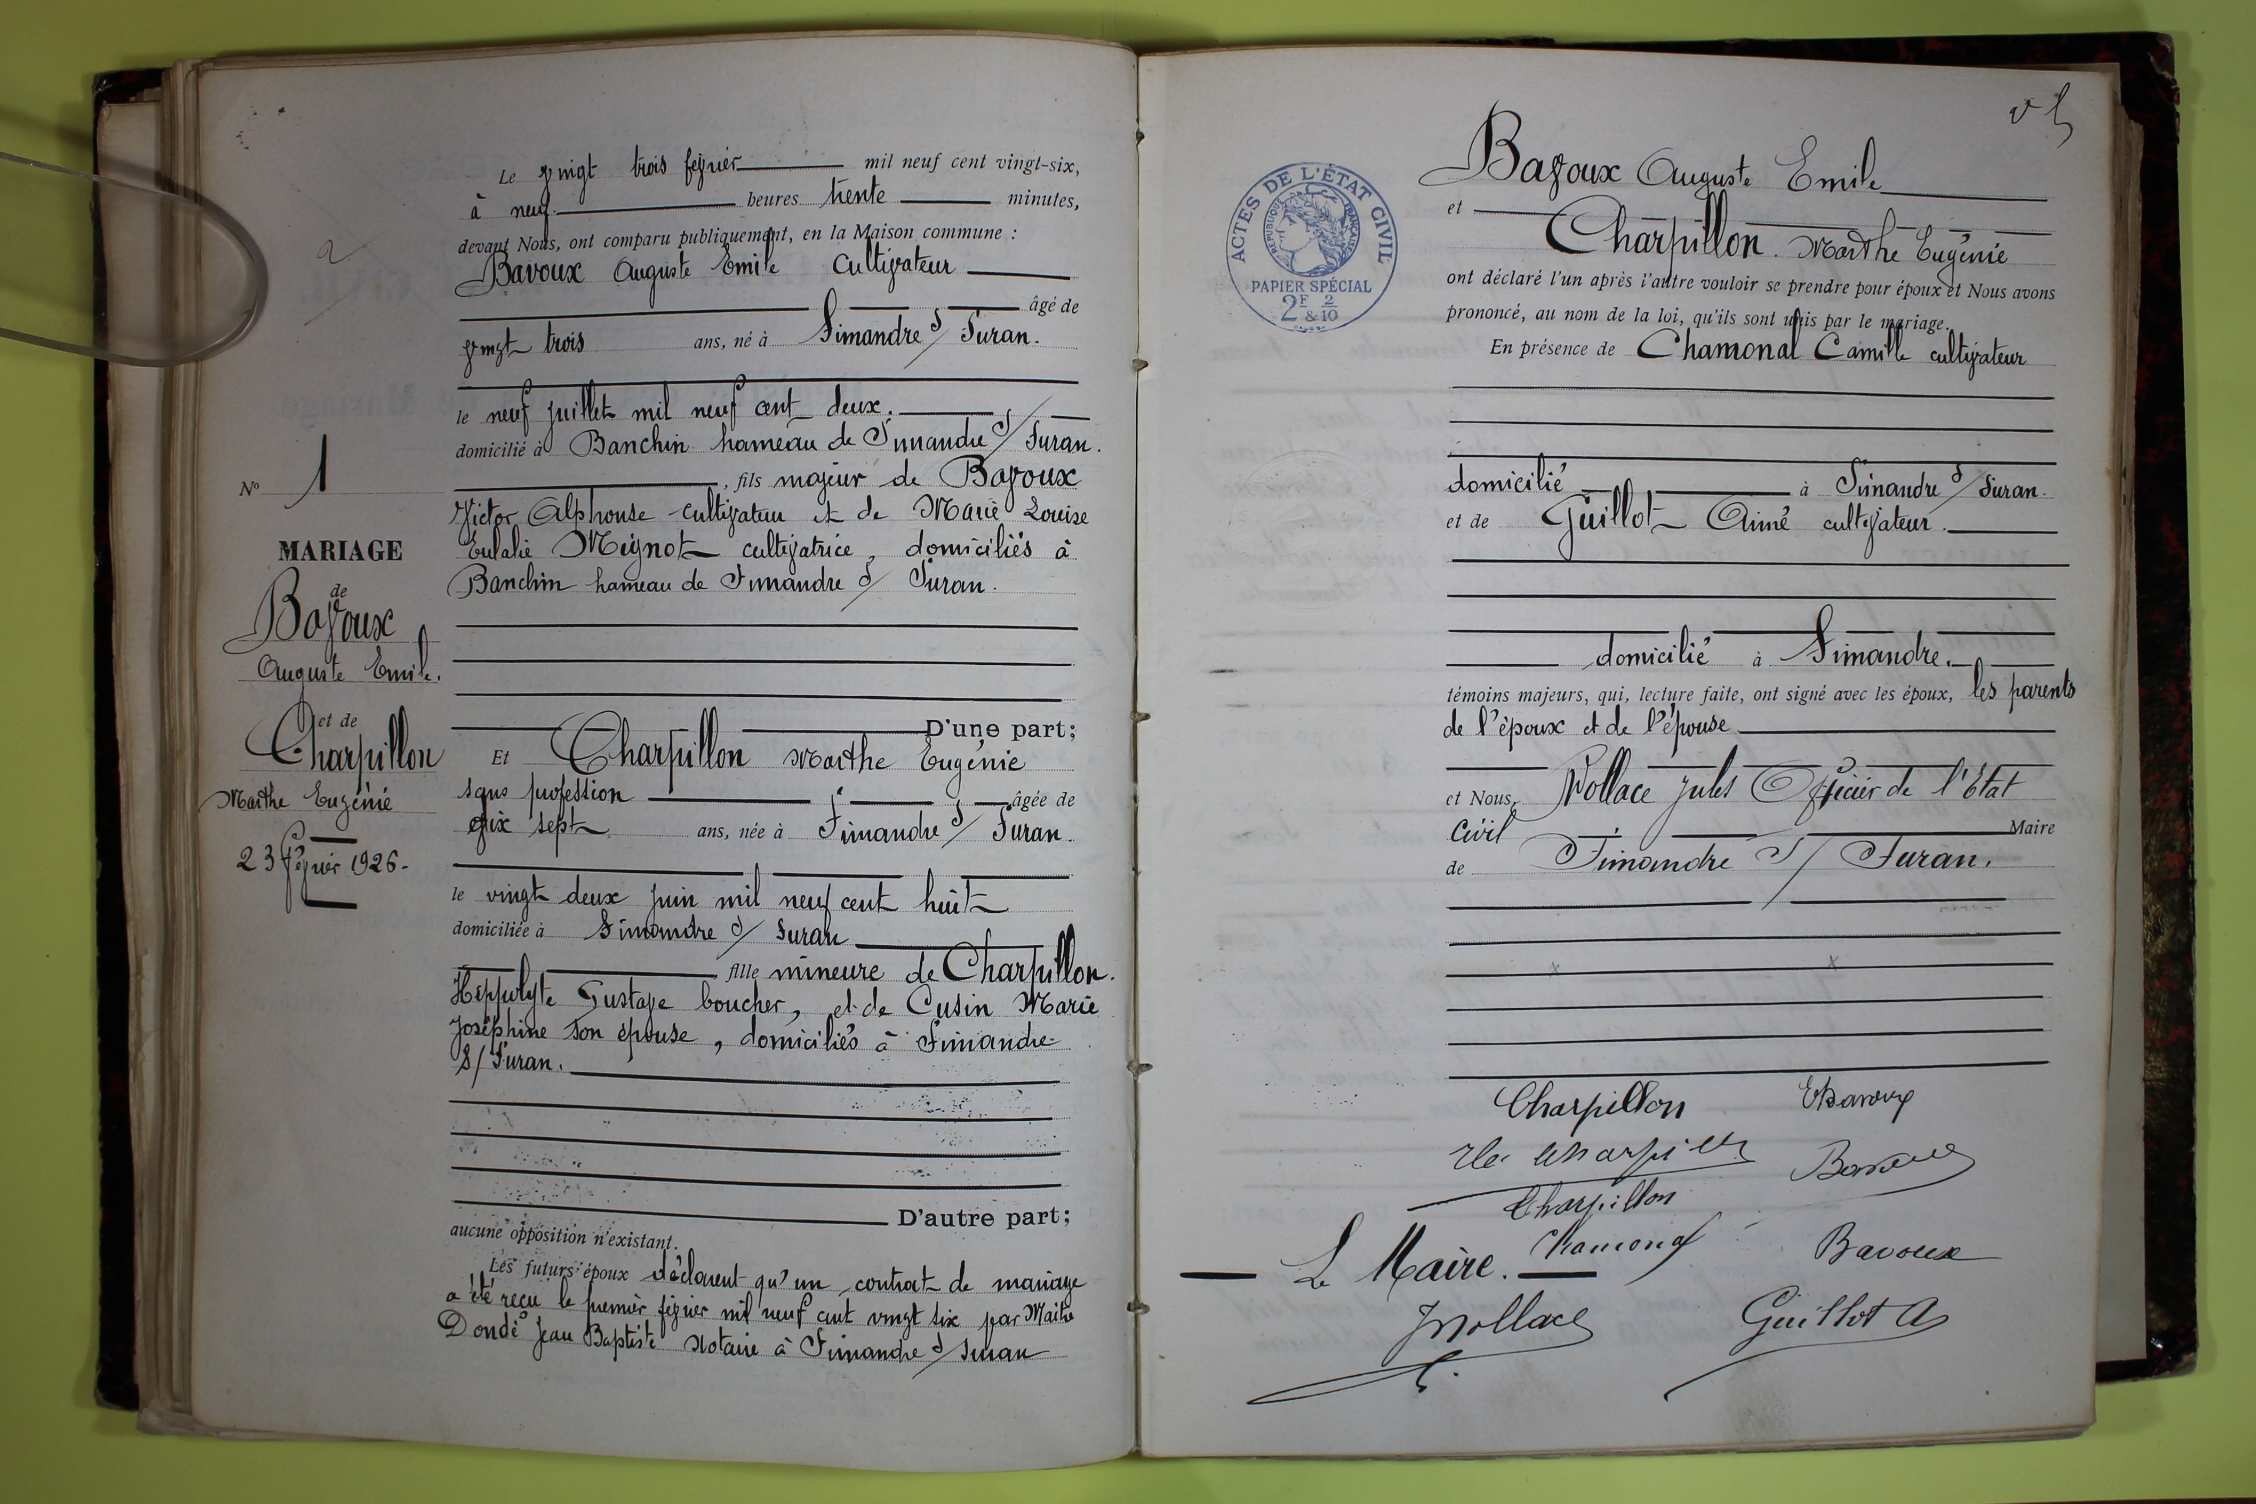 Le vingt trois février mil neuf cent vingt-six,
à neuf heures trente minutes,
devant Nous, ont comparu publiquement, en la Maison commune :
Bavoux Auguste Emile Cultivateur
âgé de
vingt trois ans, né à Simandre s/ Suran.
le neuf juillet mil neuf cent deux.
domicilié à Banchin hameau de Simandre s/ Suran.
, fils majeur de Bavoux
Victor Alphonse cultivateur et de Marie Louise
Eulalie Mignot cultivatrice, domiciliés à
Banchin hameau de Simandre s/ Suran.
D'une part;
Et Charpillon Marthe Eugénie
sans profession âgée de
dix sept ans, née à Simandre s/ Suran.
le vingt deux juin mil neuf cent huit
domiciliée à Simandre s/ Suran
fille mineure de Charpillon.
Hippolyte Gustave boucher, et de Cusin Marie
Joséphine son épouse, domiciliés à Simandre
s/ Suran.
D'autre part;
aucune opposition n'existant.
Les futurs époux déclarent qu'un contrat de mariage
a été reçu le premier février mil neuf cent vingt six par Maitre
Dondé Jean Baptiste Notaire à Simandre s/ Suran
No 1
MARIAGE
de
Bavoux
Auguste Emile.
et de
Charpillon
Marthe Eugénie
23 février 1926.
ACTES DE L'ÉTAT CIVIL
RÉPUBLIQUE FRANÇAISE
PAPIER SPÉCIAL
2F 2
&10
Bavoux Auguste Emile
et
Charpillon. Marthe Eugénie
ont déclaré l'un après l'autre vouloir se prendre pour époux et Nous avons
prononcé, au nom de la loi, qu'ils sont unis par le mariage.
En présence de Chamonal Camille cultivateur
domicilié à Simandre s/ Suran.
et de Guillot Aimé cultivateur.
domicilié à Simandre.
témoins majeurs, qui, lecture faite, ont signé avec les époux, les parents
de l'époux et de l'épouse
et Nous, Wollace Jules Officier de l'Etat
Civil Maire
de Simandre s/ Suran.
Charpillon EBavoux
Charpillon
Bavoux
Charpillon
Chamonal
Bavoux
Le Maire.
JWollace
Guillot A